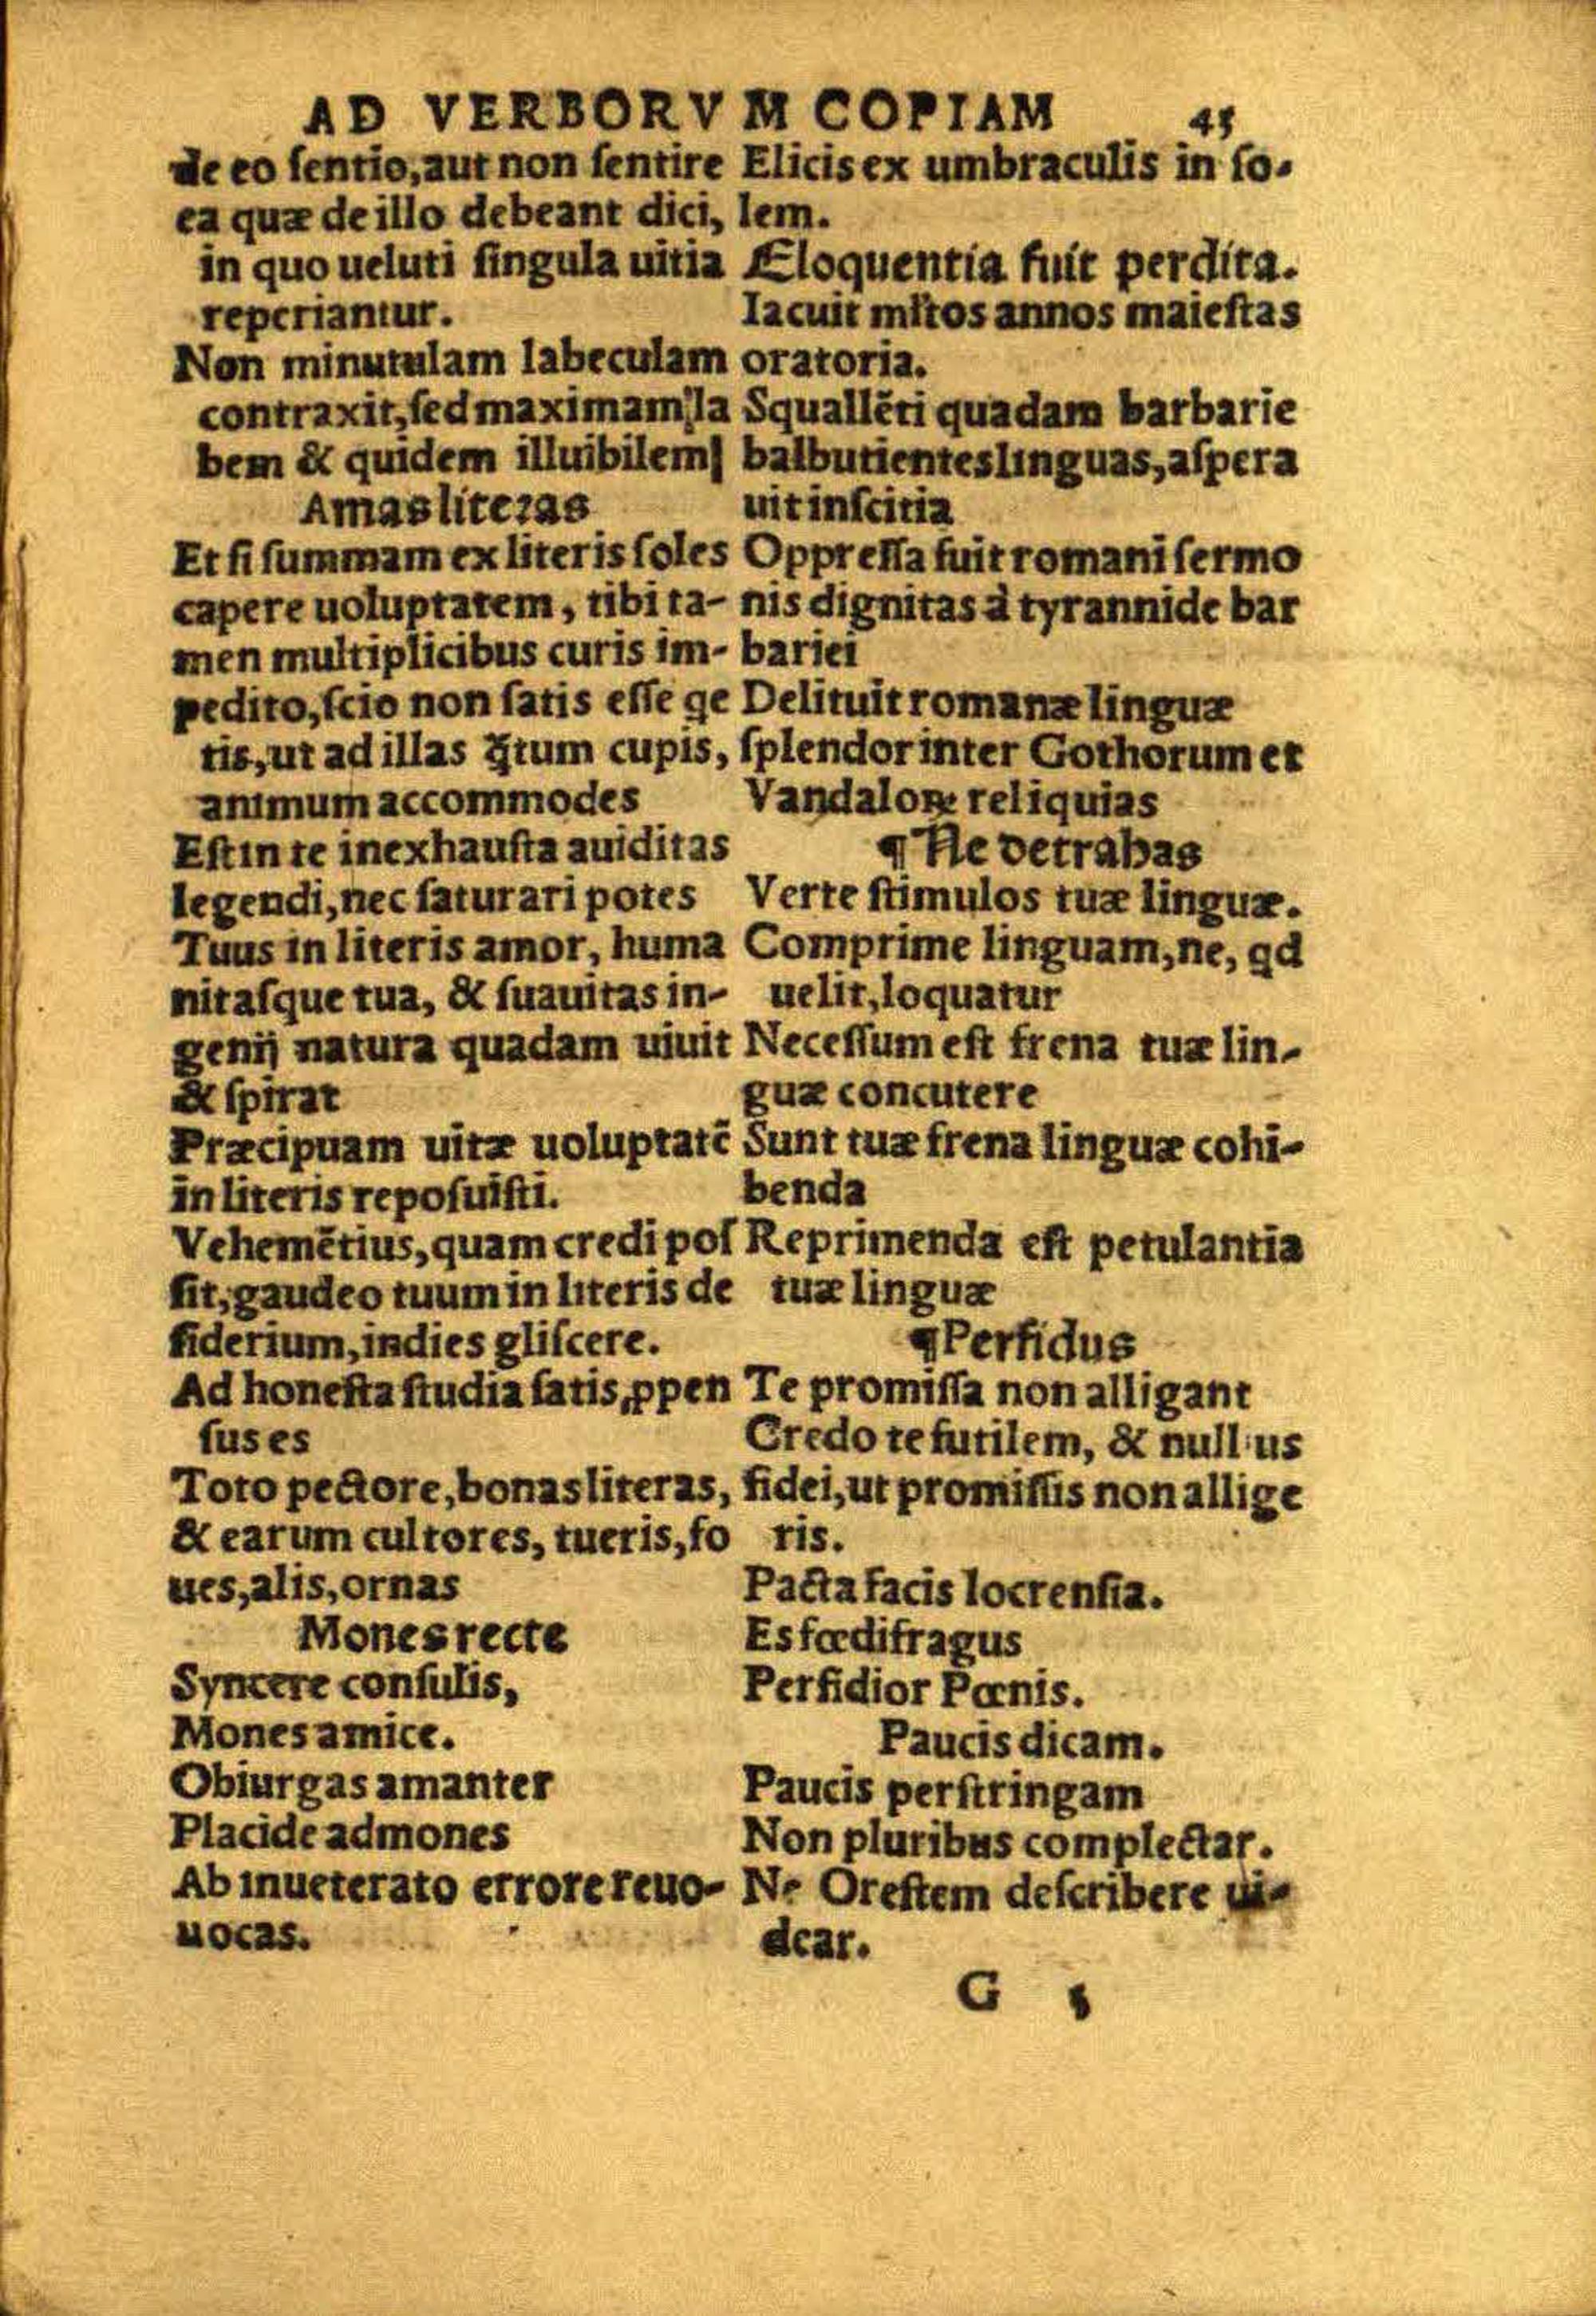 AD VERBORVM COPIAM 45
de eo ſentio, aut non ſentire
ea quæ de illo debeant dici,
in quo ueluti ſingula uitia
reperiantur.
Non minutulam labeculam
contraxit, ſed maximam la
bem & quidem illuibilem
Amas literas
Et ſi ſummam ex literis ſoles
capere uoluptatem, tibi ta-
men multiplicibus curis im-
pedito, ſcio non ſatis eſſe qe
tis, ut ad illas q̃tum cupis,
animum accommodes
Eſt in te inexhauſta auiditas
legendi, nec ſaturari potes
Tuus in literis amor, huma
nitaſque tua, & ſuauitas in-
genij natura quadam uiuit
& ſpirat
Præcipuam uitæ uoluptatẽ
in literis repoſuiſti.
Vehemẽtius, quam credi poſ
ſit, gaudeo tuum in literis de
ſiderium, indies gliſcere.
Ad honeſta ſtudia ſatis ꝓpen
ſus es
Toto pectore, bonas literas,
& earum cultores, tueris, fo
ues, alis, ornas
Mones recte
Syncere conſulis,
Mones amice.
Obiurgas amanter
Placide admones
Ab inueterato errore reuo-
uocas.
Elicis ex umbraculis in ſo-
lem.
Eloquentia fuit perdita.
Iacuit ml'tos annos maieſtas
oratoria.
Squallẽti quadam barbarie
balbutientes linguas, aſpera
uit inſcitia
Oppreſſa fuit romani ſermo
nis dignitas à tyrannide bar
bariei
Delituit romanæ linguæ
ſplendor inter Gothorum et
Vandaloꝝ reliquias
¶ Ne detrahas
Verte ſtimulos tuæ linguæ.
Comprime linguam, ne, qd
uelit, loquatur
Neceſſum eſt frena tuæ lin-
guæ concutere
Sunt tuæ frena linguæ cohi-
benda
Reprimenda eſt petulantia
tuæ linguæ
¶ Perfidus
Te promiſſa non alligant
Credo te futilem, & nullius
fidei, ut promiſſis non allige
ris.
Pacta facis locrenſia.
Es fœdifragus
Perfidior Pœnis.
Paucis dicam.
Paucis perſtringam
Non pluribus complectar.
Ne Oreſtem deſcribere ui-
dear.
G 5